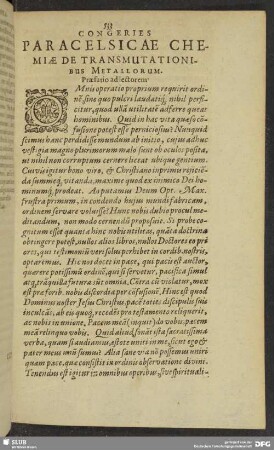 CONGERIES
PARACELSICAE CHE-
MIÆ DE TRANSMUTATIONI-
BUS METALLORUM.
Præfatio ad lectorem
OMnis operatio proprium requirit ordi-
nē sine quo pulcri laudatiq́; nihil perfi-
citur, quod ullā utilitatē adferre queat
hominibus. Quid in hac vita quæso cō-
fusione potest esse perniciosius? Nunquid
scimus hanc perdidisse mundum ab initio, cujus adhuc
vestigia magno plurimorum malo sunt ob oculos posita,
ut nihil non corruptum cernere liceat ubique gentium.
Cur vigitur bono viro, & Christiano inprimis rejiciē-
da summeq́; vitanda, maxime quod ex inimico Dei ho-
minumq́; prodeat. An putamus Deum Opt. Max.
frustra primum, in condendo hujus mundi fabricam,
ordinem servare voluisse? Hunc nobis dubio procul me-
ditandum, non modo cernendū proposuit. Si probe co-
gnitum esset quanta hinc nobis utilitas, quāta doctrina
obtingere potest, nullos alios libros, nullos Doctores eo pri
ores, qui testimonium veri solum perhibet in cordib. nostris,
optaremus. Hic nos docet in pace, qui pacis est auctor,
quærere potissimū ordinē, qui si servetur, pacifica simul
acq́; trāquilla futura sūt omnia. Cōtra ac violatur, mox
est foris. nobis discordia per cōfusionē. Hinc est quod
Dominus noster Jesus Christus, pacē toties discipulis suis
inculcās, ab eis quoq́; recedēs pro testamento reliquerit,
ac nobis in unione, Pacem meā (inquit) do vobis: pacem
meā relinquo vobis. Quid aliud sonāt ista sacratissima
verba, quam si audiamus, estote uniti in me, sicut ego &
pater meus unū sumus? Alia sane via nō possemus uniri
quam pace, quæ consistit in ordinis observatione divini.
Tenendus est igitur in omnibus operibus, sive spirituali-
SLUB